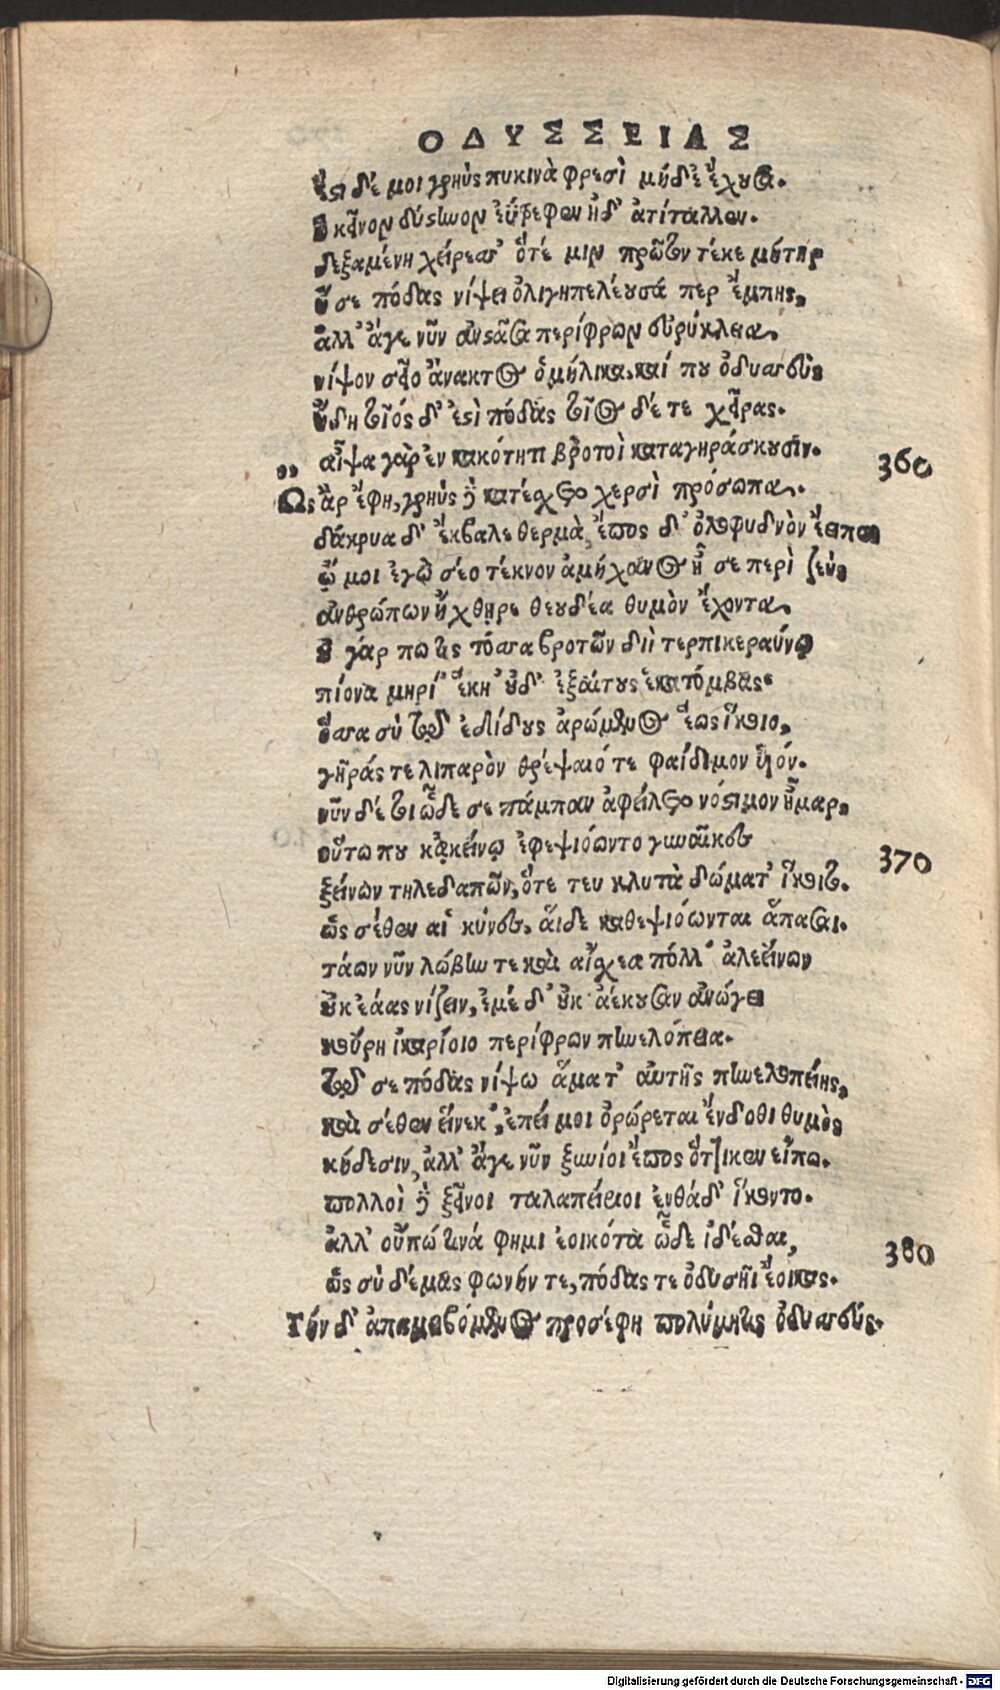 ΟΔΥΣΣΕΙΑΣ
ἔστι δέ μοι γρηῢς πυκινὰ φρεσὶ μήδε' ἔχουσα.
ἣ κεῖνον δύστηνον ἐΰτρεφεν ἠδ' ἀτίταλλεν.
δεξαμένη χείρεσσ' ὅτέ μιν πρῶτον τέκε μήτηρ
ἥ σε πόδας νίψει ὀλιγηπελέουσά περ ἔμπης,
ἀλλ' ἄγε νῦν ἀνστᾶσα περίφρων εὐρύκλεια,
νίψον σεῖο ἄνακτος ὁμήλικα, καί που ὀδυσσεὺς
ἤδη τοιός δ' ἐστὶ πόδας τοῖος δέ τε χεῖρας.
αἶψα γὰρ ἐν κακότητι βροτοὶ καταγηράσκουσιν. 360
Ὣς ἄρ' ἔφη, γρηῢς δὲ κατέσχετο χερσὶ πρόσωπα,
δάκρυα δ' ἔκβαλε θερμὰ, ἔπος δ' ὀλοφυδνὸν ἔειπεν
ᾤ μοι ἐγὼ σέο τέκνον ἀμήχανος ἦ σε περὶ ζεὺς
ἀνθρώπων ἤχθηρε θεουδέα θυμὸν ἔχοντα,
οὐ γάρ πω τις τόσσα βροτῶν διὶ τερπικεραύνῳ
πίονα μηρί' ἔκη' οὐδ' ἐξαίτους ἑκατόμβας
ὅσσα σὺ τῷ ἐδίδους ἀρώμενος ἕως ἵκοιο,
γῆράς τε λιπαρὸν θρέψαιό τε φαίδιμον υἱόν.
νῦν δέ τοι ᾧδε σε πάμπαν ἀφείλετο νόστιμον ἦμαρ,
οὕτω που κᾀκείνῳ ἐφεψιόωντο γυναῖκες 370
ξείνων τηλεδαπῶν, ὅτε τευ κλυτὰ δώματ' ἵκοιτο.
ὣς σέθεν αἱ κύνες, αἵδε καθεψιόωνται ἅπασαι.
τάων νῦν λώβην τε καὶ αἴσχεα πόλλ' ἀλεείνων
οὐκ ἐάας νίζειν, ἐμὲ δ' οὐκ ἀέκουσαν ἀνώγει
κούρη ἰκαρίοιο περίφρων πηνελόπεια.
τῷ σε πόδας νίψω ἅματ' αὐτῆς πηνελοπείης,
καὶ σέθεν εἵνεκ', ἐπεί μοι ὀρώρεται ἔνδοθι θυμὸς
κήδεσιν, ἀλλ' ἄγε νῦν ξυνίοι ἔπος ὅττι κεν εἴπω.
πολλοὶ δὲ ξεῖνοι ταλαπείριοι ἐνθάδ' ἵκοντο.
ἀλλ' οὔπώ τινά φημι ἐοικότα ᾧδε ἰδέσθαι, 380
ὣς σὺ δέμας φωνήν τε, πόδας τε ὀδυσῆϊ ἔοικας.
Τήν δ' ἀπαμειβόμενος προσέφη πολύμητις ὀδυσσεύς.
Digitalisierung gefördert durch die Deutsche Forschungsgemeinschaft - DFG